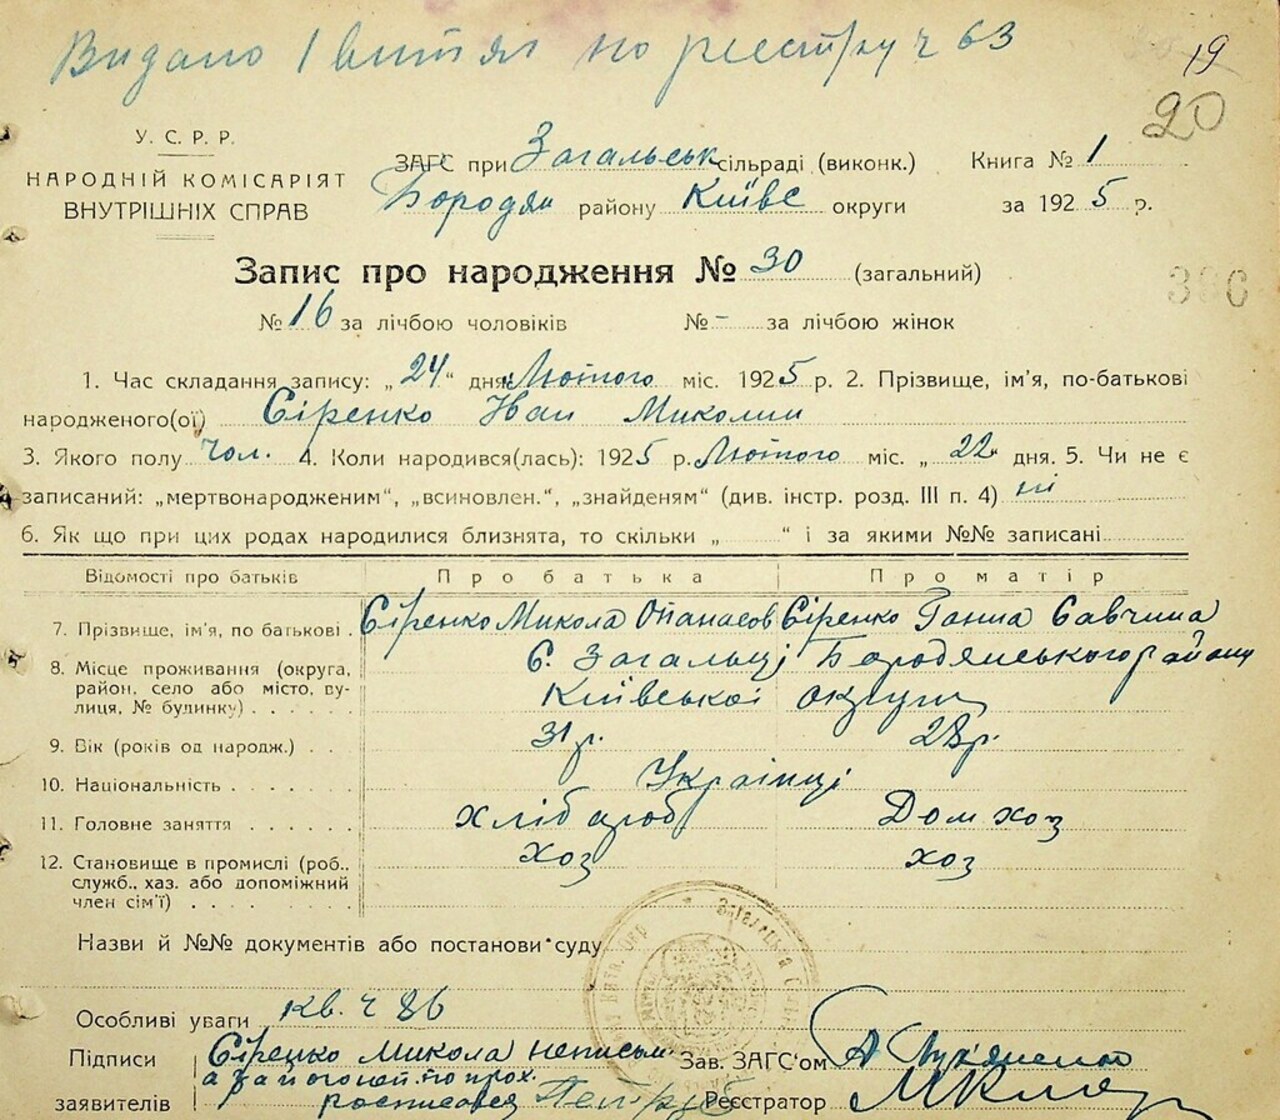 Видано 1 витяг по реєстру ч 63
19
20
У. С. Р. Р.
НАРОДНІЙ КОМІСАРІЯТ
ВНУТРІШНІХ СПРАВ
ЗАГС при Загальськ сільраді (виконк.) Книга № 1
Бородян району Київс округи за 1925 р.
Запис про народження № 30 (загальний)
№ 16 за лічбою чоловіків № - за лічбою жінок
1. Час складання запису: „24“ дня Лютого міс. 1925 р. 2. Прізвище, ім’я, по-батькові
народженого(ої) Сіренко Иван Миколин
3. Якого полу чол. 4. Коли народився(лась): 1925 р. Лютого міс. „22 дня. 5. Чи не є
записаний: „мертвонародженим“, „всиновлен.“, „знайденям“ (див. інстр. розд. III п. 4) ні
6. Як що при цих родах народилися близнята, то скільки „ “ і за якими №№ записані
Відомості про батьків Про батька Про матір
7. Прізвище, ім’я, по батькові Сіренко Микола Опанасов Сіренко Ганна Савчина
8. Місце проживання (округа, район, село або місто, вулиця, № будинку) С. Загальці Бородянського району
Київської округи
9. Вік (років од народж.) 31 р. 28 р.
10. Національність Українці
11. Головне заняття Хлібароб Дом хоз
12. Становище в промислі (роб., служб., хаз. або допоміжний член сім’ї) хоз хоз
Назви й №№ документів або постанови суду
Особливі уваги кв. ч 86
Підписи Сіренко Микола неписьм Зав. ЗАГС’ом
заявителів росписався Реєстратор